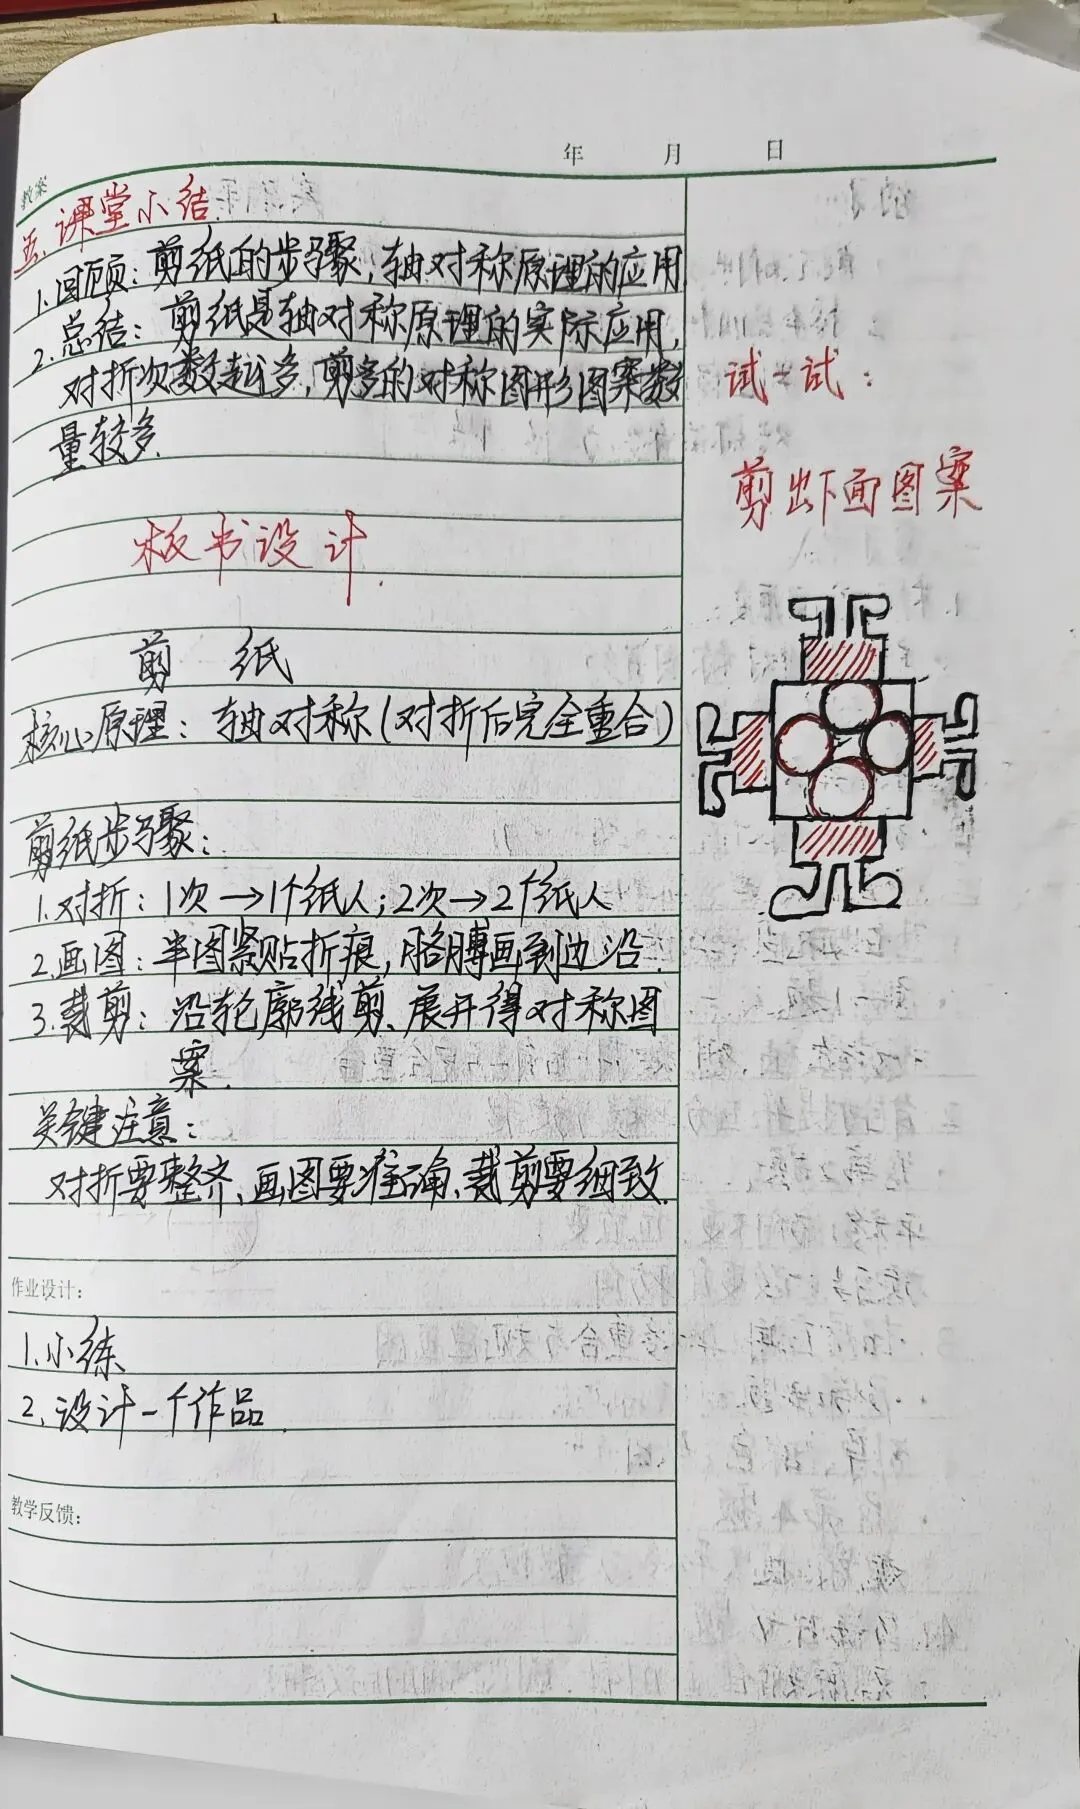 年 月 日
教案
五、课堂小结
1.回顾：剪纸的步骤，轴对称原理的应用
2.总结：剪纸是轴对称原理的实际应用，
对折次数越多，剪多的对称图形图案数
量较多.
板书设计.
剪 纸
核心原理：轴对称(对折后完全重合)
剪纸步骤：
1.对折：1次→1个纸人；2次→2个纸人
2.画图：半图紧贴折痕，胳膊画到边沿.
3.裁剪：沿轮廓线剪、展开得对称图
案.
关键注意：
对折要整齐、画图要准确、裁剪要细致.
作业设计：
1.小练
2.设计一个作品.
教学反馈：
试一试：
剪出下面图案